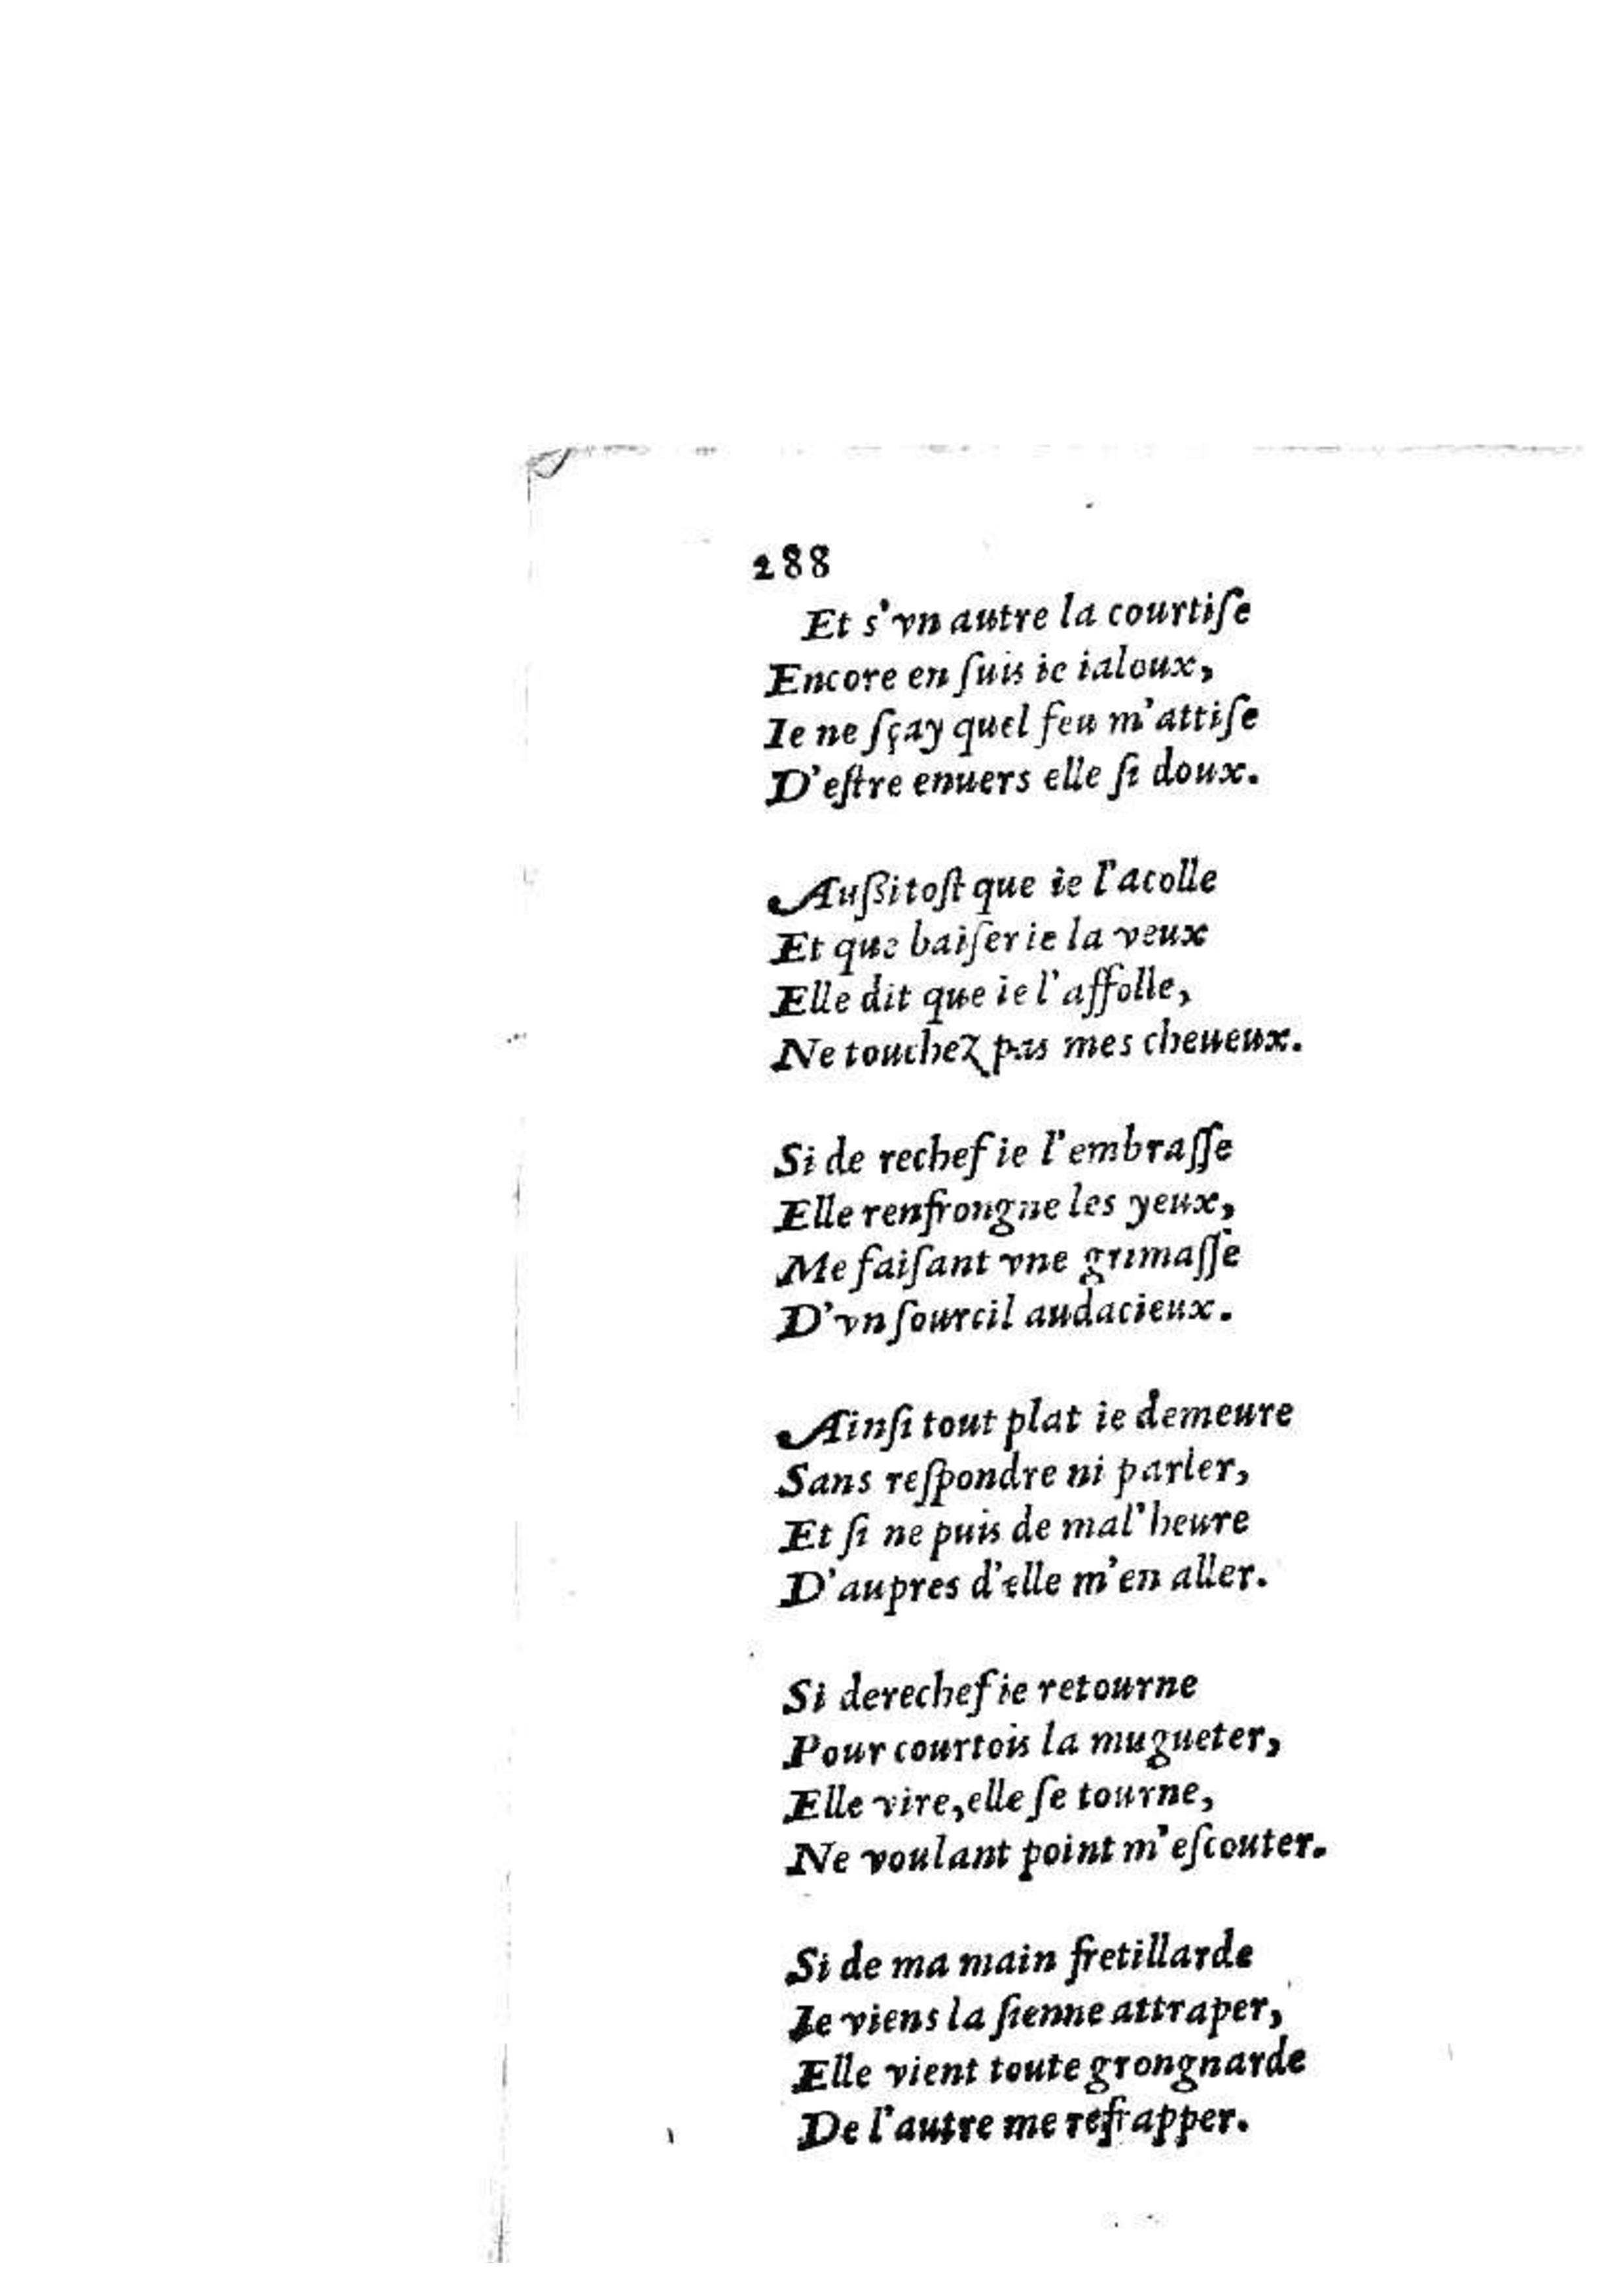 288
Et s'vn autre la courtiſe
Encore en ſuis ie ialoux,
Ie ne ſçay quel feu m'attiſe
D'eſtre enuers elle ſi doux.
Auſſitoſt que ie l'acolle
Et que baiſer ie la veux
Elle dit que ie l'affolle,
Ne touchez pas mes cheueux.
Si de rechef ie l'embraſſe
Elle renfrongne les yeux,
Me faiſant vne grimaſſe
D'vn ſourcil audacieux.
Ainſi tout plat ie demeure
Sans reſpondre ni parler,
Et ſi ne puis de mal'heure
D'aupres d'elle m'en aller.
Si derechef ie retourne
Pour courtois la mugueter,
Elle vire, elle ſe tourne,
Ne voulant point m'eſcouter.
Si de ma main fretillarde
Ie viens la ſienne attraper,
Elle vient toute grongnarde
De l'autre me refrapper.